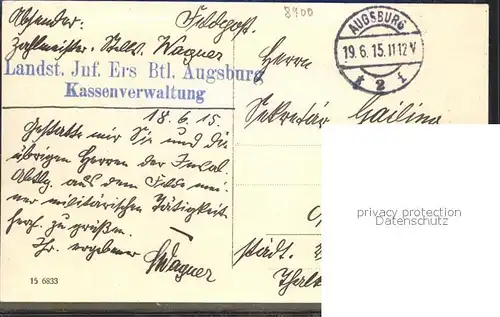 Absender: Feldpost.
Zahlmeister-Stellv. Wagner
Landst. Inf. Ers Btl. Augsburg
Kassenverwaltung
18.6.15.
Gestatte mir Sie und die
übrigen Herren der
Abtlg. aus dem Felde mei-
ner militärischen Tätigkeit
herzl. zu grüßen.
Ihr ergebener
Wagner
15 6833
8900
AUGSBURG
19.6.15.11-12V
* 2 I
Herrn
Sekretär
städt.
privacy protection
Datenschutz